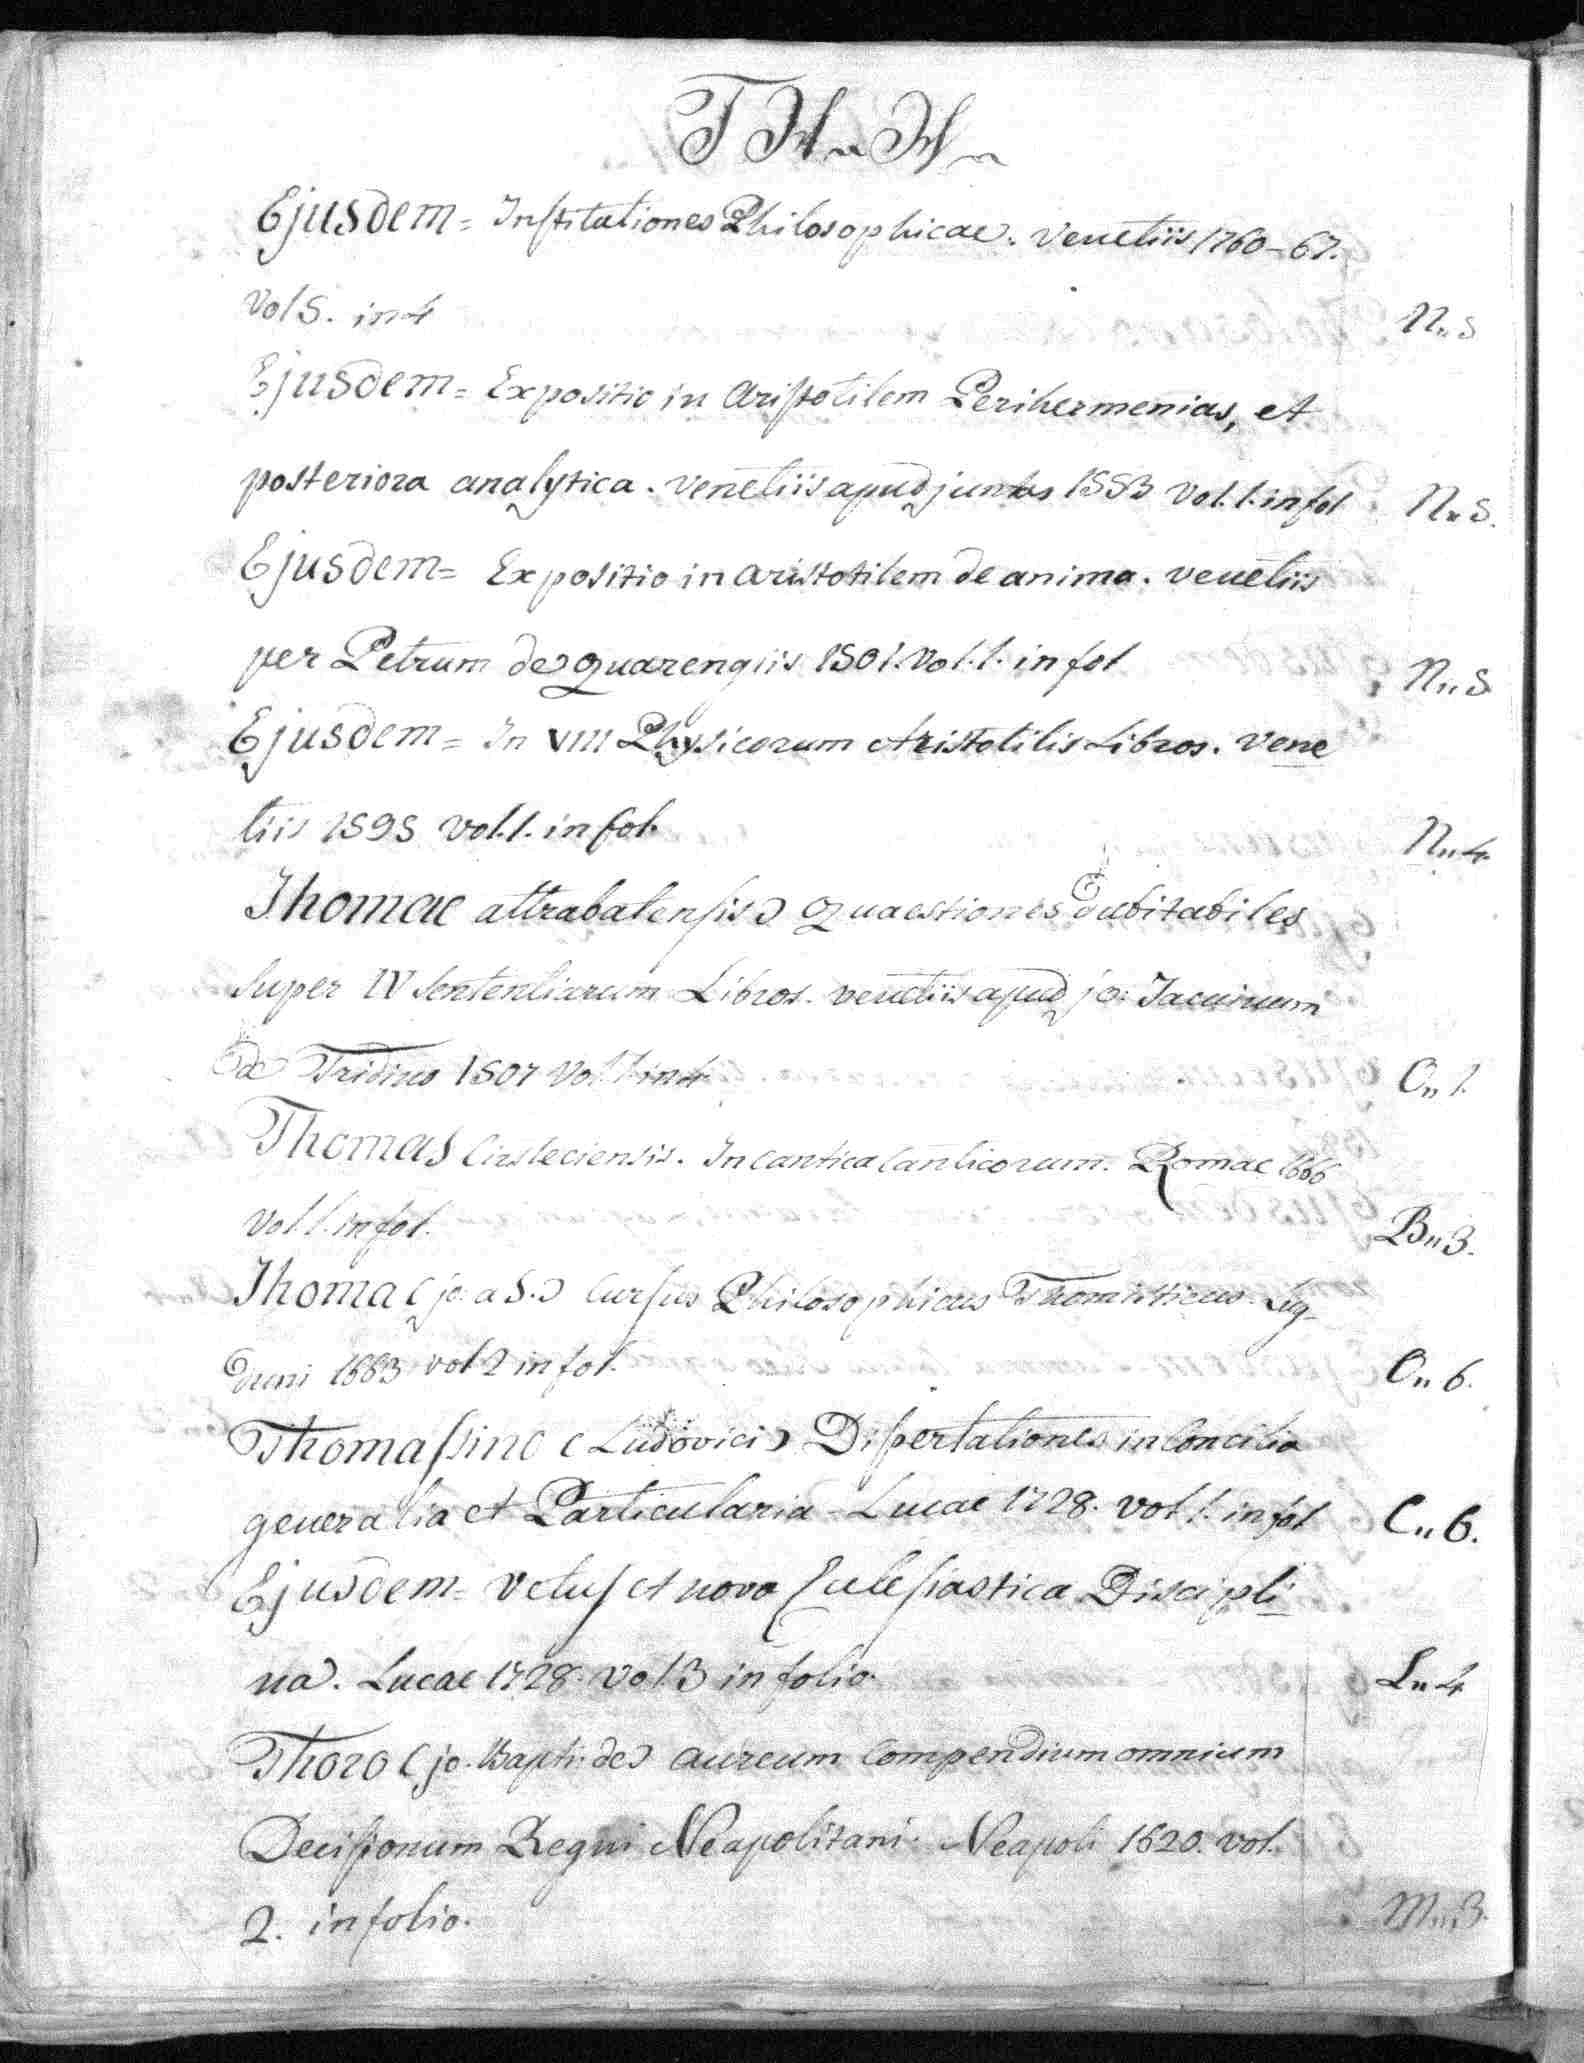 TH„H„
Ejusdem = Institutiones Philosophicae. Venetiis 1760-67.
Vol 5. in 4 N„ 5
Ejusdem = Expositio in Aristotilem Perihermenias, et
posteriora analytica. Venetiis apud juntas 1553 Vol. 1. in fol N„ 5.
Ejusdem = Expositio in Aristotilem de anima. Venetiis
per Petrum de Quarengiis 1501. Vol. 1. in fol N„ 5
Ejusdem = In VIII Physicorum Aristotilis Libros. Vene
tiis 1595 Vol. 1. in fol. N„ 4.
Thomae attrabatensis Quaestiones dubitabiles
super IV Sententiarum Libros. Venetiis apud jo: Tacuinum
de Tridino 1507 Vol 1 in 4 O„ 1.
Thomas Cirsteciensis. In Cantica Canticorum. Romae 1666
Vol. 1. in fol. B„ 3.
Thoma (jo: a S.) Cursus Philosophicus Thomisticus. Lug-
duni 1663 vol 2 in fol. O„ 6.
Thomassino (Ludovici) Dissertationes in Concilia
generalia et Particularia - Lucae 1728. Vol 1. in fol C„ 6.
Ejusdem = Vetus et nova Eclesiastica Discipli
na. Lucae 1728. Vol 3 in folio. L„ 4
Thoro (jo. Bapti: de) Aureum Compendium omnium
Decisionum Regni Neapolitani. Neapoli 1620. vol.
2. in folio. M„ 3.